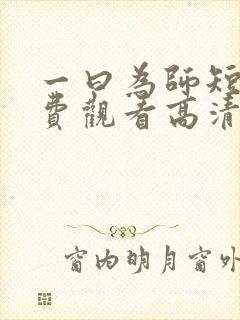 一曰為師短
費觀看高清
窗內明月窗外